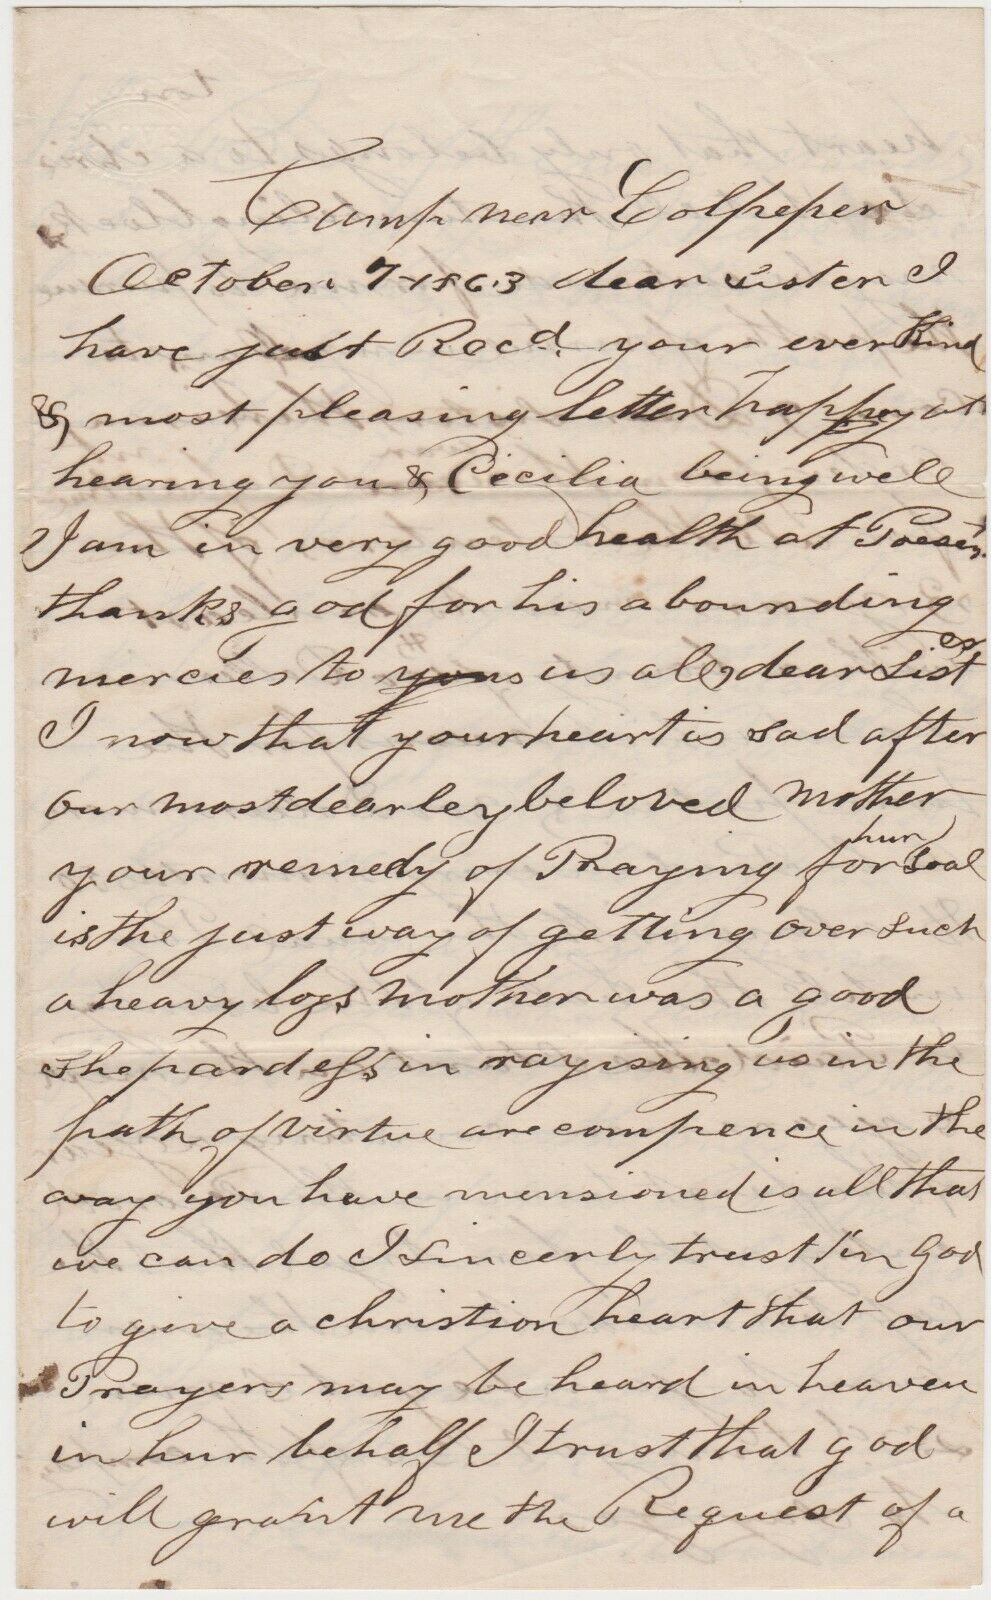 Camp near Colpeper
October 7 1863 dear sister I
have just Recd. your ever Kind
& most pleasing letter happey at
hearing you & Cicilia being well
I am in very good health at Presen.
thanks god for his abounding
mercies to yous us all dear Sister
I now that your heart is sad after
our most dearley beloved mother
your remedy of Praying for hur soal
is the just way of getting over such
a heavy loss mother was a good
shepardess in rayising us in the
path of virtue are compence in the
way you have mensioned is all that
we can do I sincerly trust in God
to give a christion heart that our
Prayers may be heard in heaven
in hur behalf I trust that god
will grant me the Request of a